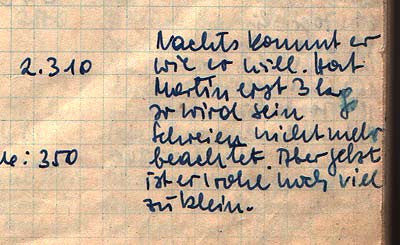 Nachts kommt er
2.310 wie er will. Hat
Martin erst 3 kg
er wird sein
Schreien nicht mehr
: 350 beachtet. Aber jetzt
ist er wohl noch viel
zu klein.